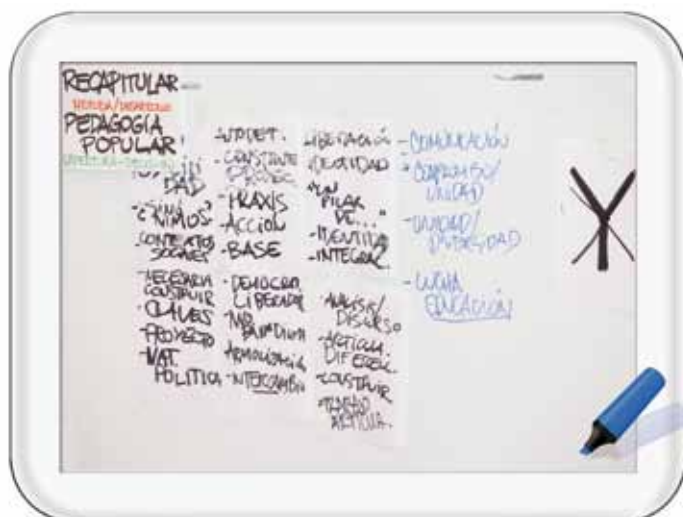 RECAPITULAR
PEDAGOGÍA
POPULAR
DAD
CONTEXTOS
SOCIALES
NECESARIA
CONSTRUIR
-CLAVES
-PROYECTO
-NAT.
POLÍTICA
CONSTRUYE
-PRAXIS
-ACCIÓN
-BASE
-DEMOCRA
LIBERADOR
PARADIGMA
-INTERCAMBIO
LIBERACIÓN
IDENTIDAD
"UN
PILAR
DE..."
-IDENTIDAD
-INTEGRAL
ANÁLISIS/
DISCURSO
-ARTICUL.
DIFEREN.
-CONSTRUIR
ARTICUA.
-COMUNICACIÓN
-COMPROMISO/
UNIDAD
-UNIDAD/
DIVERSIDAD
-LUCHA
EDUCACIÓN